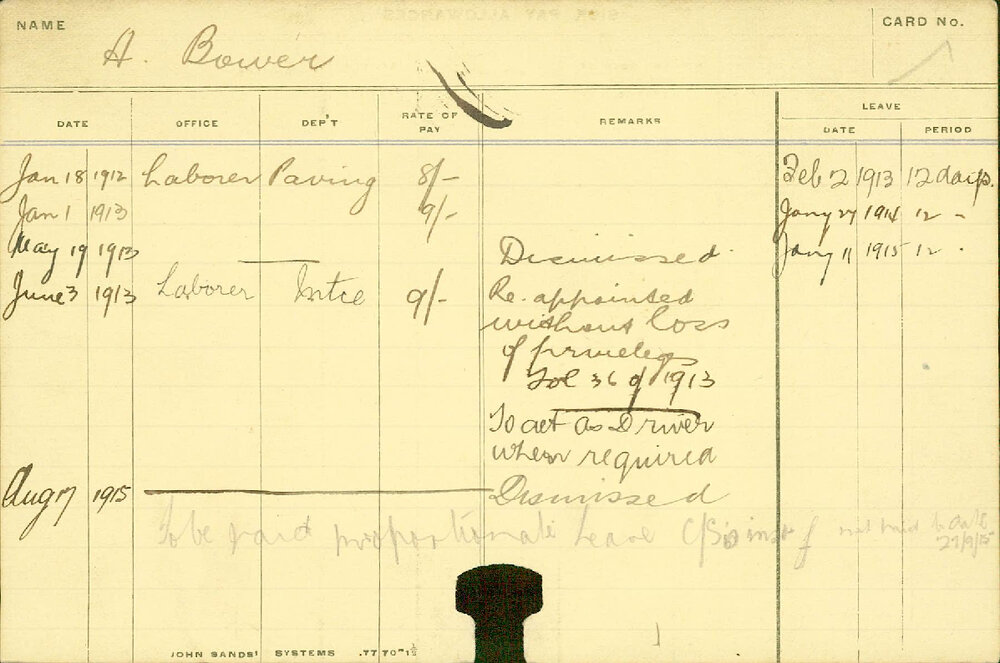 NAME
CARD No.
A. Bower
DATE OFFICE DEP'T RATE OF PAY REMARKS LEAVE
DATE PERIOD
Jan 18 1912 Laborer Paving 8/- Feb 2 1913 12 days.
Jan 1 1913 9/- Jany 27 1914 12 -
May 19 1913 Dismissed Jany 11 1915 12 -
June 3 1913 Laborer Intce 9/- Re-appointed
without loss
of privileges
Sol 36 of 1913
To act as Driver
when required
Aug 17 1915 Dismissed
To be paid proportionate Leave not paid to date
27/9/15
JOHN SANDS' SYSTEMS